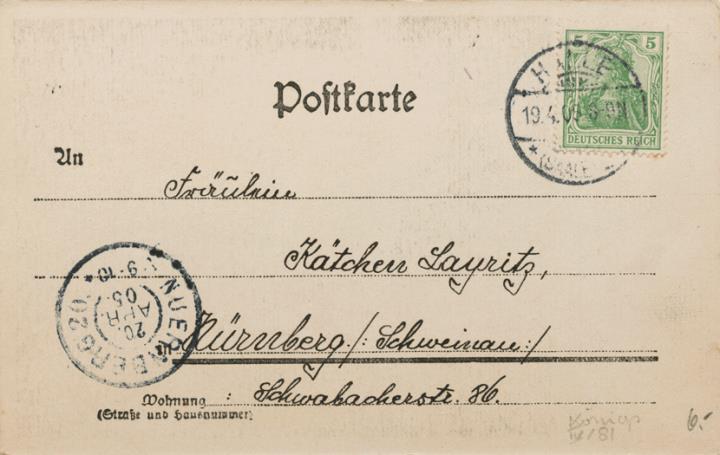 5 5
DEUTSCHES REICH
HALLE
19.4.05 8-9N
* (SAALE
Postkarte
An
Fräulein
Kätchen Layritz,
in Nürnberg /: Schweinau :/
Schwabacherstr. 86.
Wohnung :
(Straße und Hausnummer)
NUERNBERG 20.
20
APR.
05
9-10
IV/81
6.-